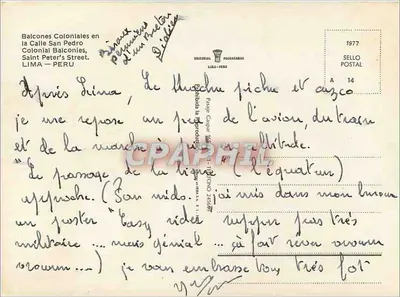 Balcones Coloniales en
la Calle San Pedro
Colonial Balconies,
Saint Peter's Street.
LIMA — PERU
Bisous
péruviens
d'un Breton
EDITORIAL PANAMERICANA
LIMA-PERU
1977
SELLO
POSTAL
A 14
Après Lima, Le Machu pichu et cuzco
je me repose un peu de l'avion, du train
et de la marche à pied en altitude.
"Le passage de la ligne" (l'équateur)
approche. (Son mido. j'ai mis dans mon bureau
un poster "Easy rider" super pas très
militaire .... mais génial ... çà fait rêver vroum
vroum ....) je vous embrasse tous très fort
CPRAPHIL